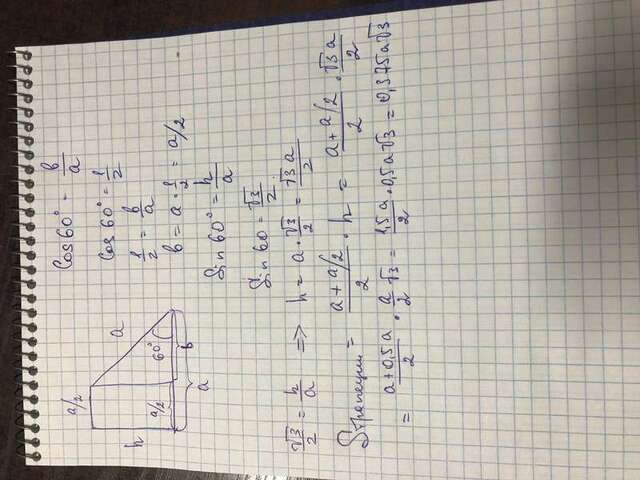 a/2
Cos60° = b/a
a
Cos60° = 1/2
h
1/2 = b/a
a/2
60°
b = a · 1/2 = a/2
b
a
Sin60° = h/a
Sin60 = √3/2
√3/2 = h/a => h = a · √3/2 = √3a/2
Sтрапеции = (a + a/2)/2 · h = (a + a/2)/2 · √3a/2
= (a+0,5a)/2 · a/2 √3 = 1,5a/2 · 0,5a√3 = 0,375a√3